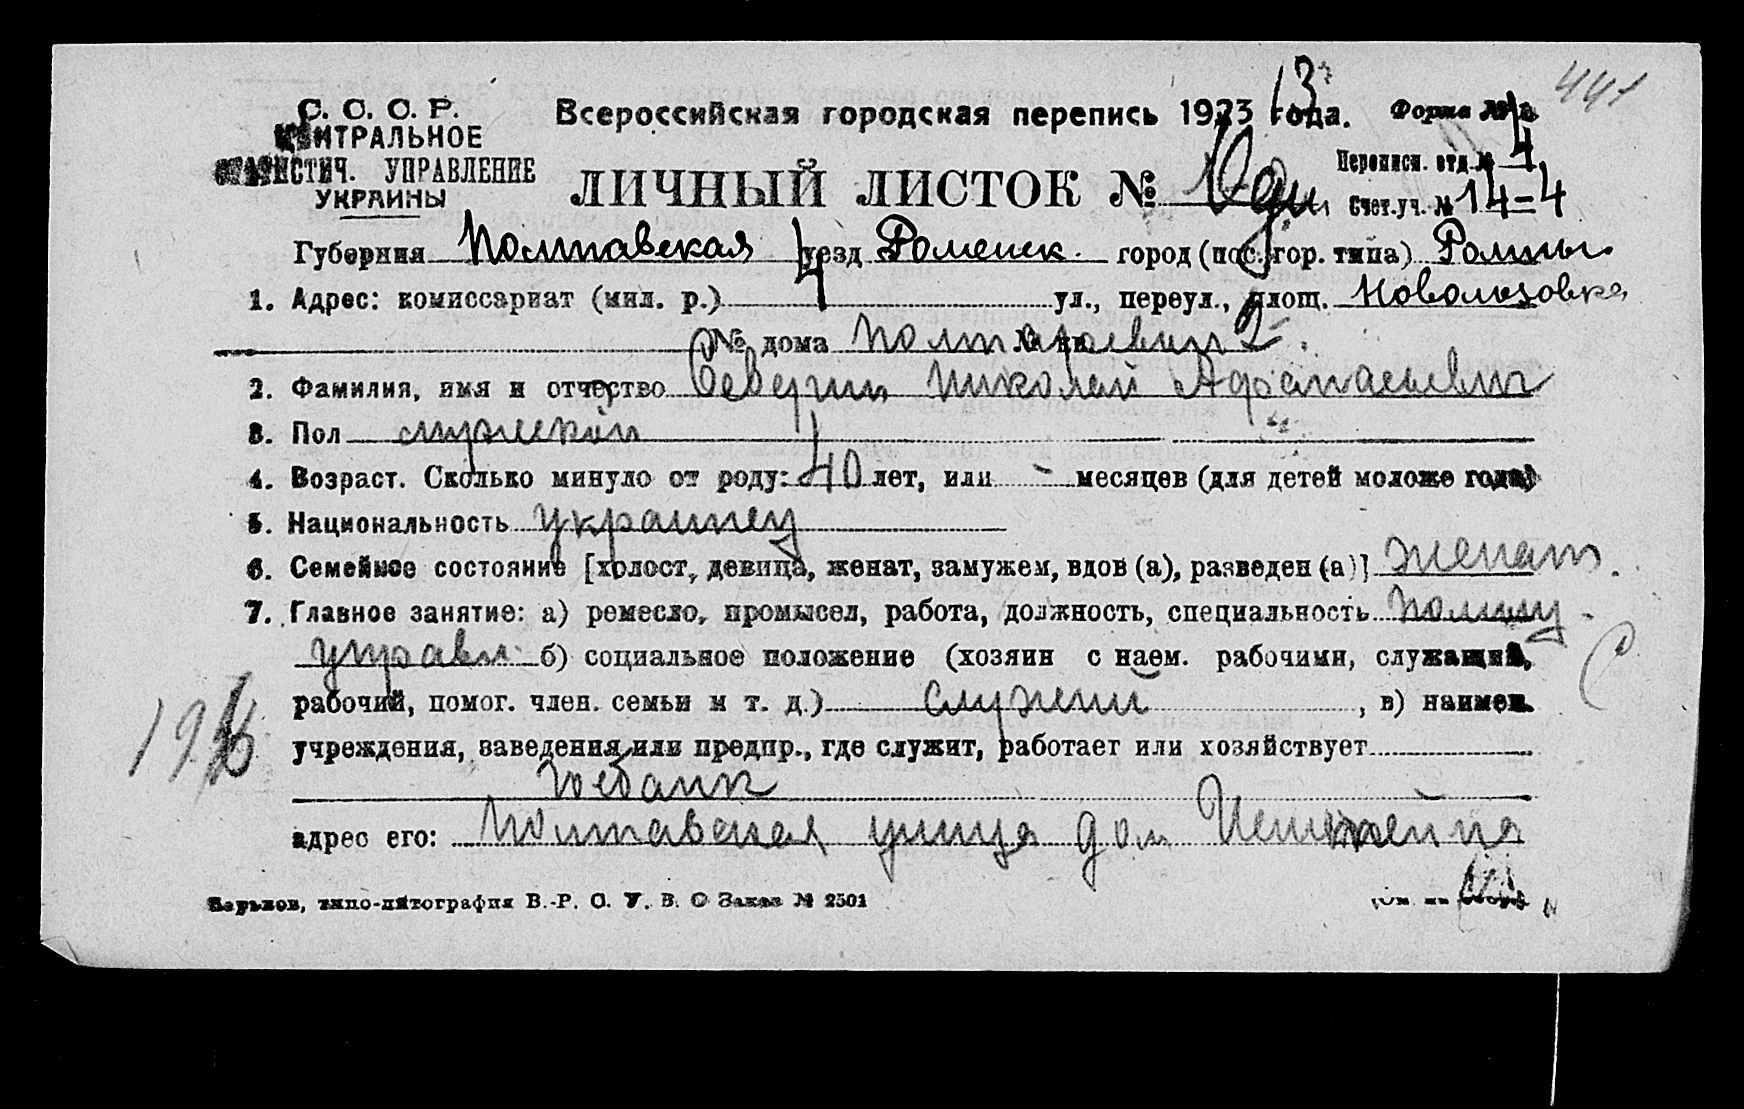 441
С. С. С. Р. Всероссийская городская перепись 1923 года. Форма №
ЦЕНТРАЛЬНОЕ
СТАТИСТИЧ. УПРАВЛЕНИЕ Переписн. отд. № 4
УКРАИНЫ ЛИЧНЫЙ ЛИСТОК № Счет.уч. № 14=4
Губерния Полтавская уезд Роменск. город (пос. гор. типа) Ромны
1. Адрес: комиссариат (мил. р.) 4 ул., переул., площ.
№ дома № кв. 2
2. Фамилия, имя и отчество Северин Николай Афанасьевич
3. Пол мужской
4. Возраст. Сколько минуло от роду: 40 лет, или - месяцев (для детей моложе года)
5. Национальность украинец
6. Семейное состояние [холост, девица, женат, замужем, вдов (а), разведен (а)] женат.
7. Главное занятие: а) ремесло, промысел, работа, должность, специальность
б) социальное положение (хозяин с наем. рабочими, служащий,
рабочий, помог. член. семьи и т. д.) , в) наимен.
учреждения, заведения или предпр., где служит, работает или хозяйствует
адрес его: Полтавская улица дом
Харьков, типо-литография В.-Р. С. У. В. О Заказ № 2501